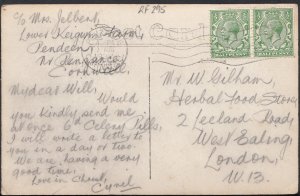 AF 295
c/o Mrs. Jelbert,
Lower Keigwin Farm,
Pendeen,
Nr Penzance,
Cornwall
My dear Will,
Would
you kindly send me
at once 6 Celery Pills,
I will write a letter to
you in a day or two.
We are having a very
good time.
Love in Christ,
Cyril
Mr W Gilham,
Herbal Food Store
2 Leeland Road,
West Ealing,
London,
W.13.